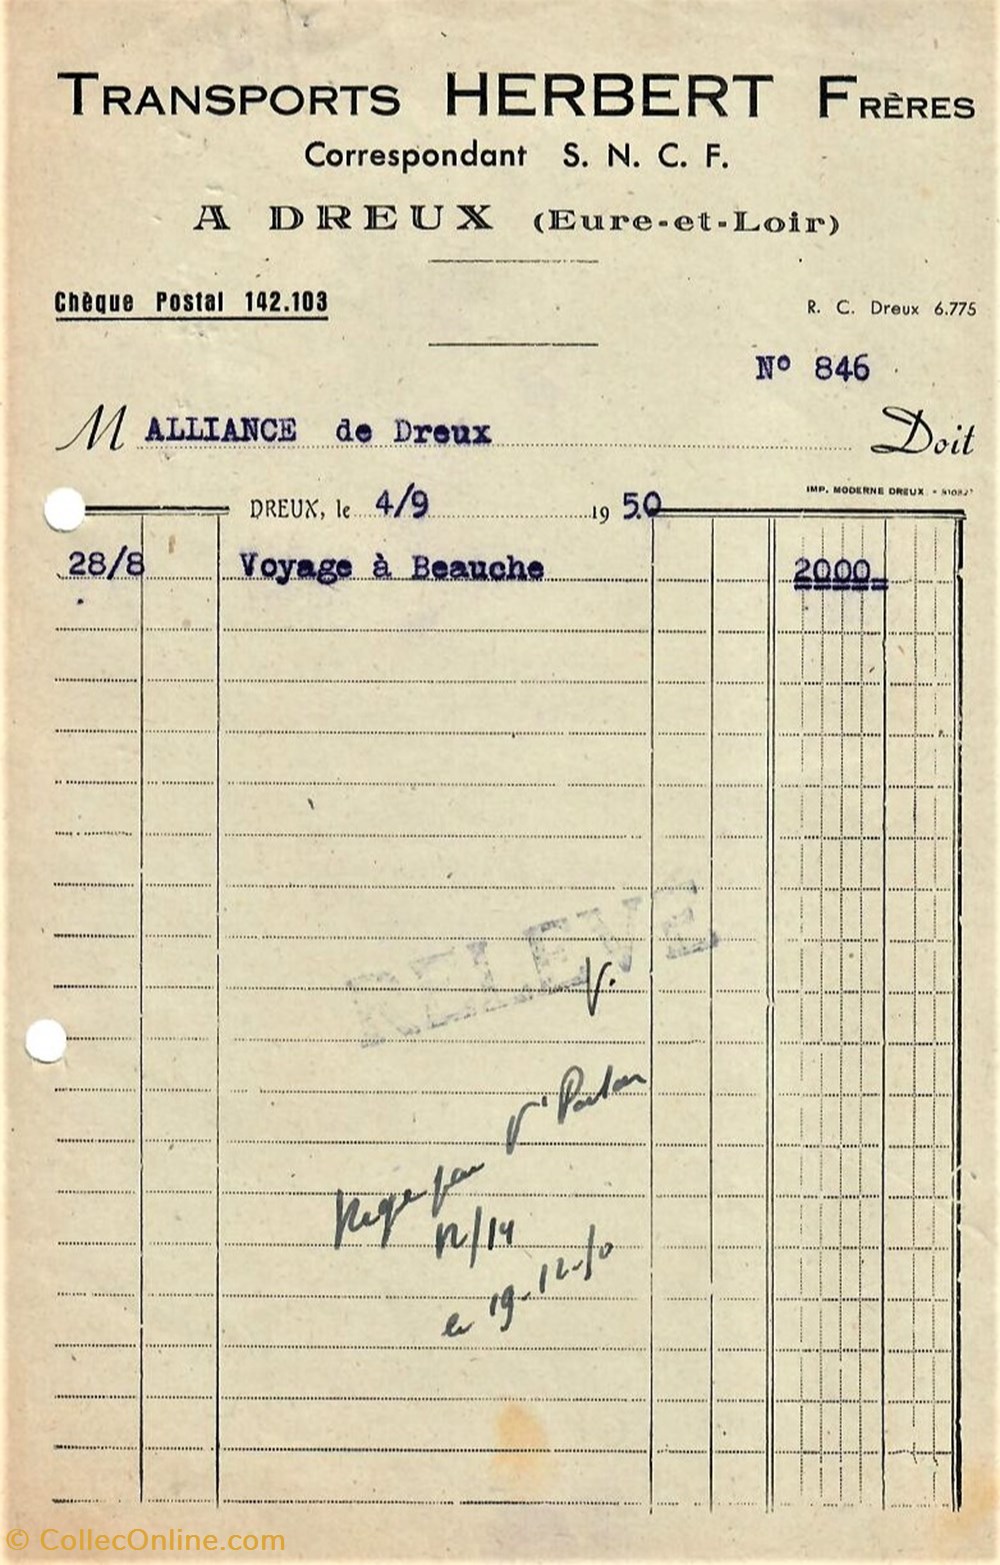 TRANSPORTS HERBERT FRÈRES
Correspondant S. N. C. F.
A DREUX (Eure-et-Loir)
Chèque Postal 142.103
R. C. Dreux 6.775
Nº 846
M ALLIANCE de Dreux Doit
IMP. MODERNE DREUX
DREUX, le 4/9 1950
28/8 Voyage à Beauche 2000
RELEVE
V.
par
12/14
le 19-12-50
© CollecOnline.com